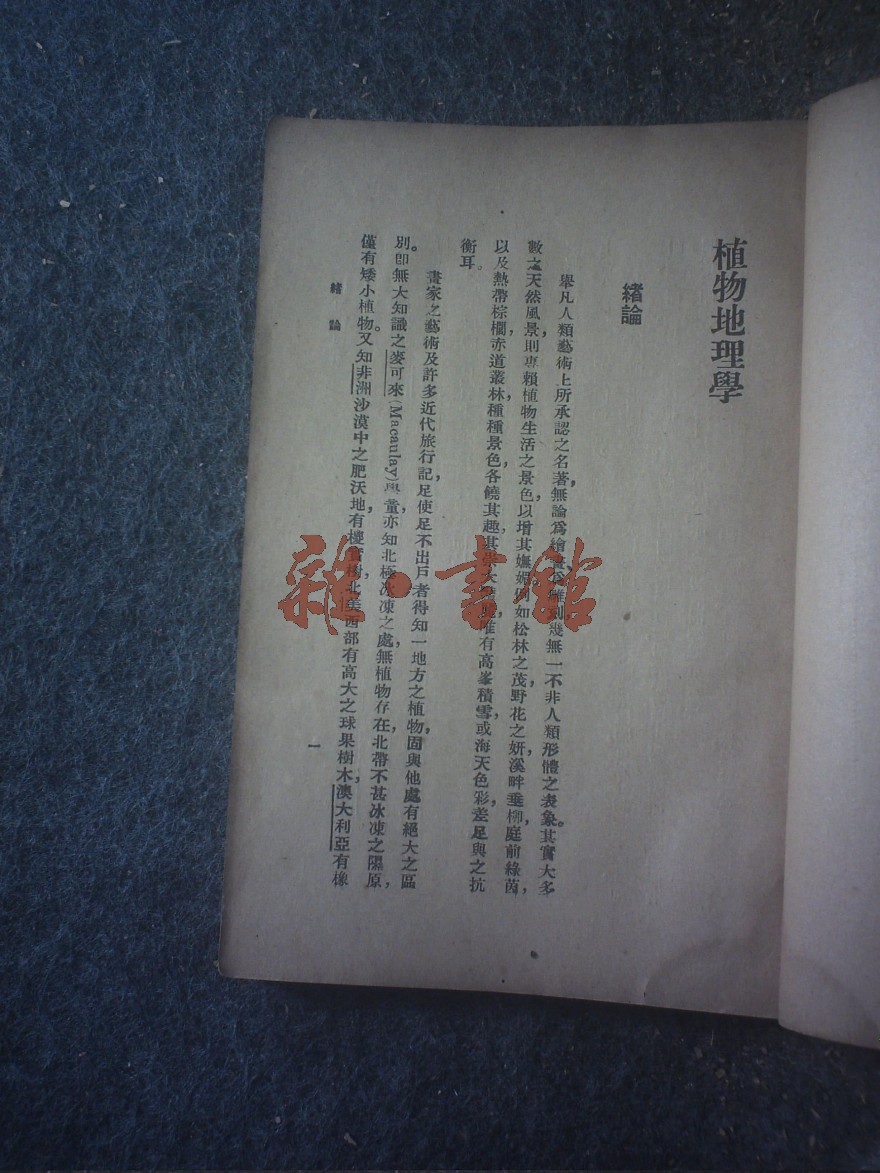 植物地理學
緒論
舉凡人類藝術上所承認之名著，無論爲繪畫爲雕刻，幾無一不非人類形體之表象。其實大多
數之天然風景，則專賴植物生活之景色，以增其嫵媚。例如松林之茂，野花之妍，溪畔垂柳，庭前綠茵，
以及熱帶棕櫚，赤道叢林，種種景色，各饒其趣，其 大 唯有高峯積雪，或海天色彩，差足與之抗
衡耳。
畫家之藝術及許多近代旅行記，足使足不出戶者得知一地方之植物，固與他處有絕大之區
別。卽無大知識之麥可來(Macaulay) 童，亦知北極冰凍之處，無植物存在，北帶不甚冰凍之隰原，
僅有矮小植物。又知非洲沙漠中之肥沃地，有 樹，北美西部有高大之球果樹木，澳大利亞有橡
緒論
一
雜·書館